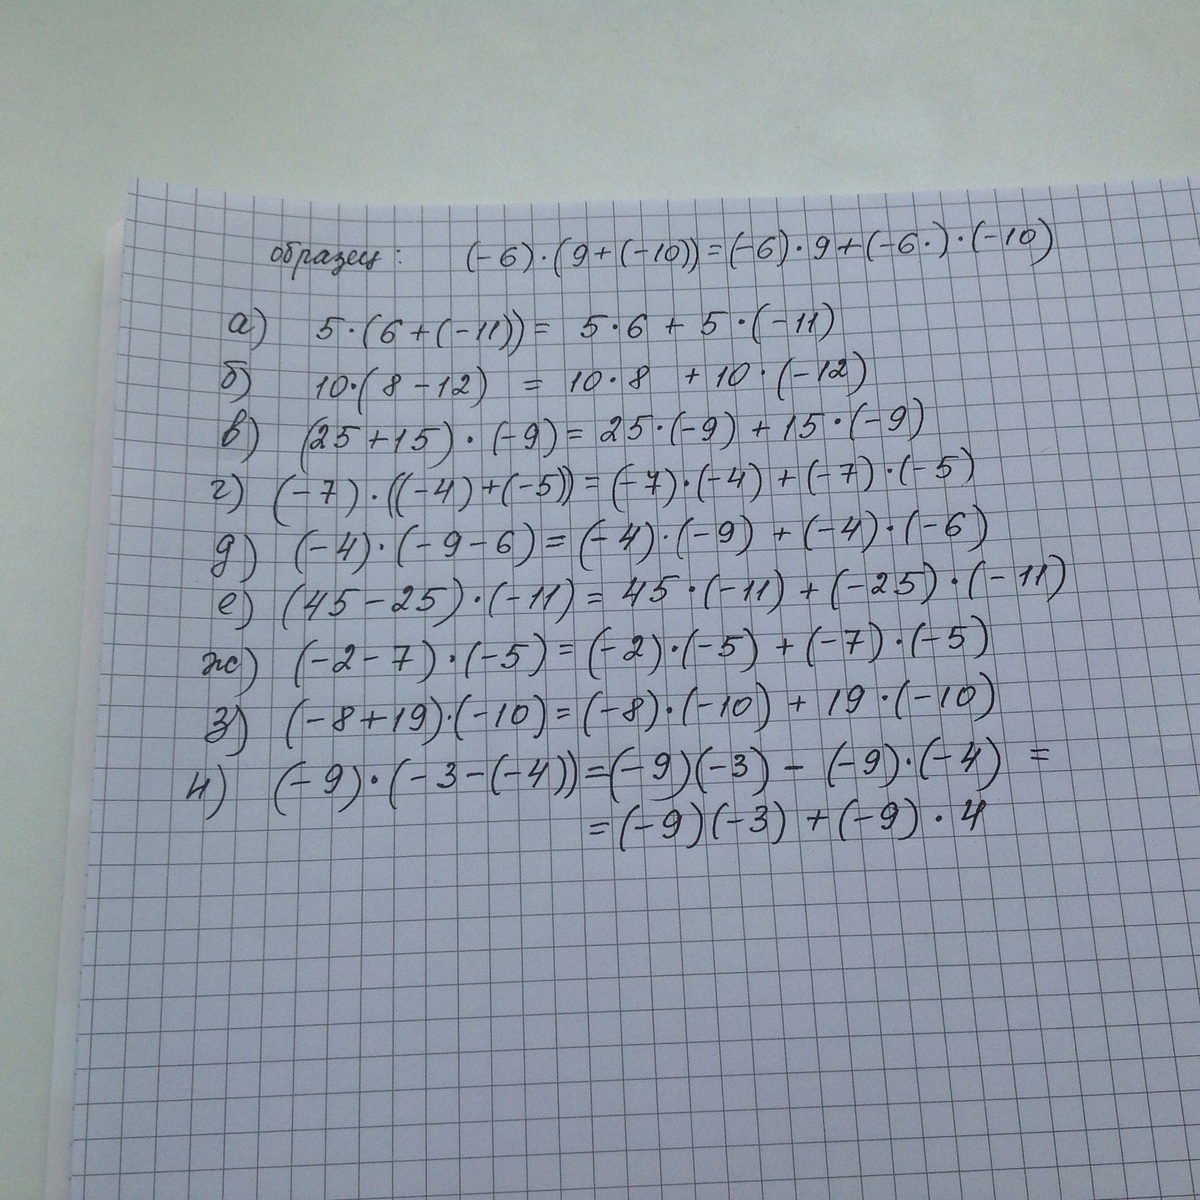 образец: (-6)·(9+(-10))=(-6)·9+(-6·)·(-10)
а) 5·(6+(-11))= 5·6 + 5·(-11)
б) 10·(8-12) = 10·8 +10·(-12)
в) (25+15)·(-9)=25·(-9)+15·(-9)
г) (-7)·((-4)+(-5))=(-7)·(-4)+(-7)·(-5)
д) (-4)·(-9-6)=(-4)·(-9)+(-4)·(-6)
е) (45-25)·(-11)=45·(-11)+(-25)·(-11)
ж) (-2-7)·(-5)=(-2)·(-5)+(-7)·(-5)
з) (-8+19)·(-10)=(-8)·(-10)+19·(-10)
и) (-9)·(-3-(-4))=(-9)(-3)-(-9)·(-4) =
=(-9)(-3)+(-9)·4